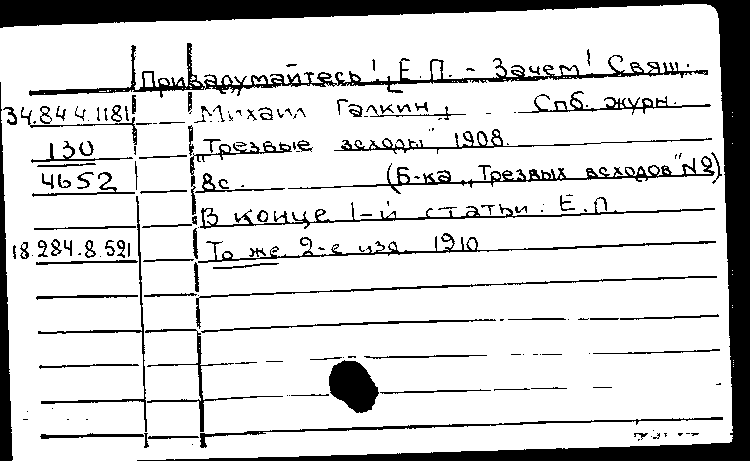 Призадумайтесь! [Е.П. - Зачем! Свящ.
34.84 4.1181 Михаил Галкин] Спб. журн.
130 „Трезвые всходы", 1908.
4652 8с. (Б-ка „Трезвых всходов" №2)
В конце 1-й статьи: Е.П.
18.284.8.591 То же. 2-е изд. 1910